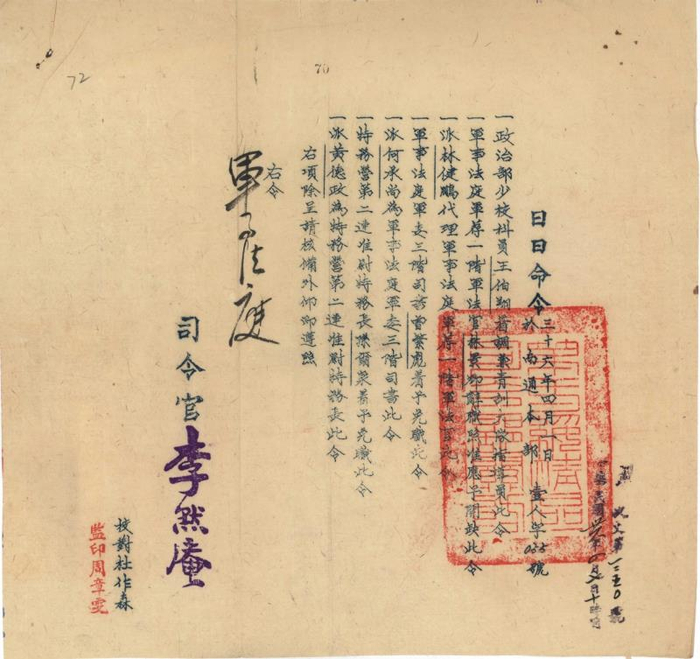 日日命令
三十六年四月一日
於南通本部 壹人字035號
一政治部少校科員王伯翔着調兼青訓大隊指導員此令
一軍事法庭軍荐一階軍法官林景 辭職照准應予開缺此令
一派林健鵬代理軍事法庭軍荐一階軍法官此令
一軍事法庭軍委三階司書曾繁彪着予免職此令
一派何承尚為軍事法庭軍委三階司書此令
一特務營第二連准尉特務長 爾榮着予免職此令
一派黃德政為特務營第二連准尉特務長此令
右項除呈請核備外仰即遵照
右令
軍法庭
司令官 李然庵
校對杜作森
監印周章雯
70
72